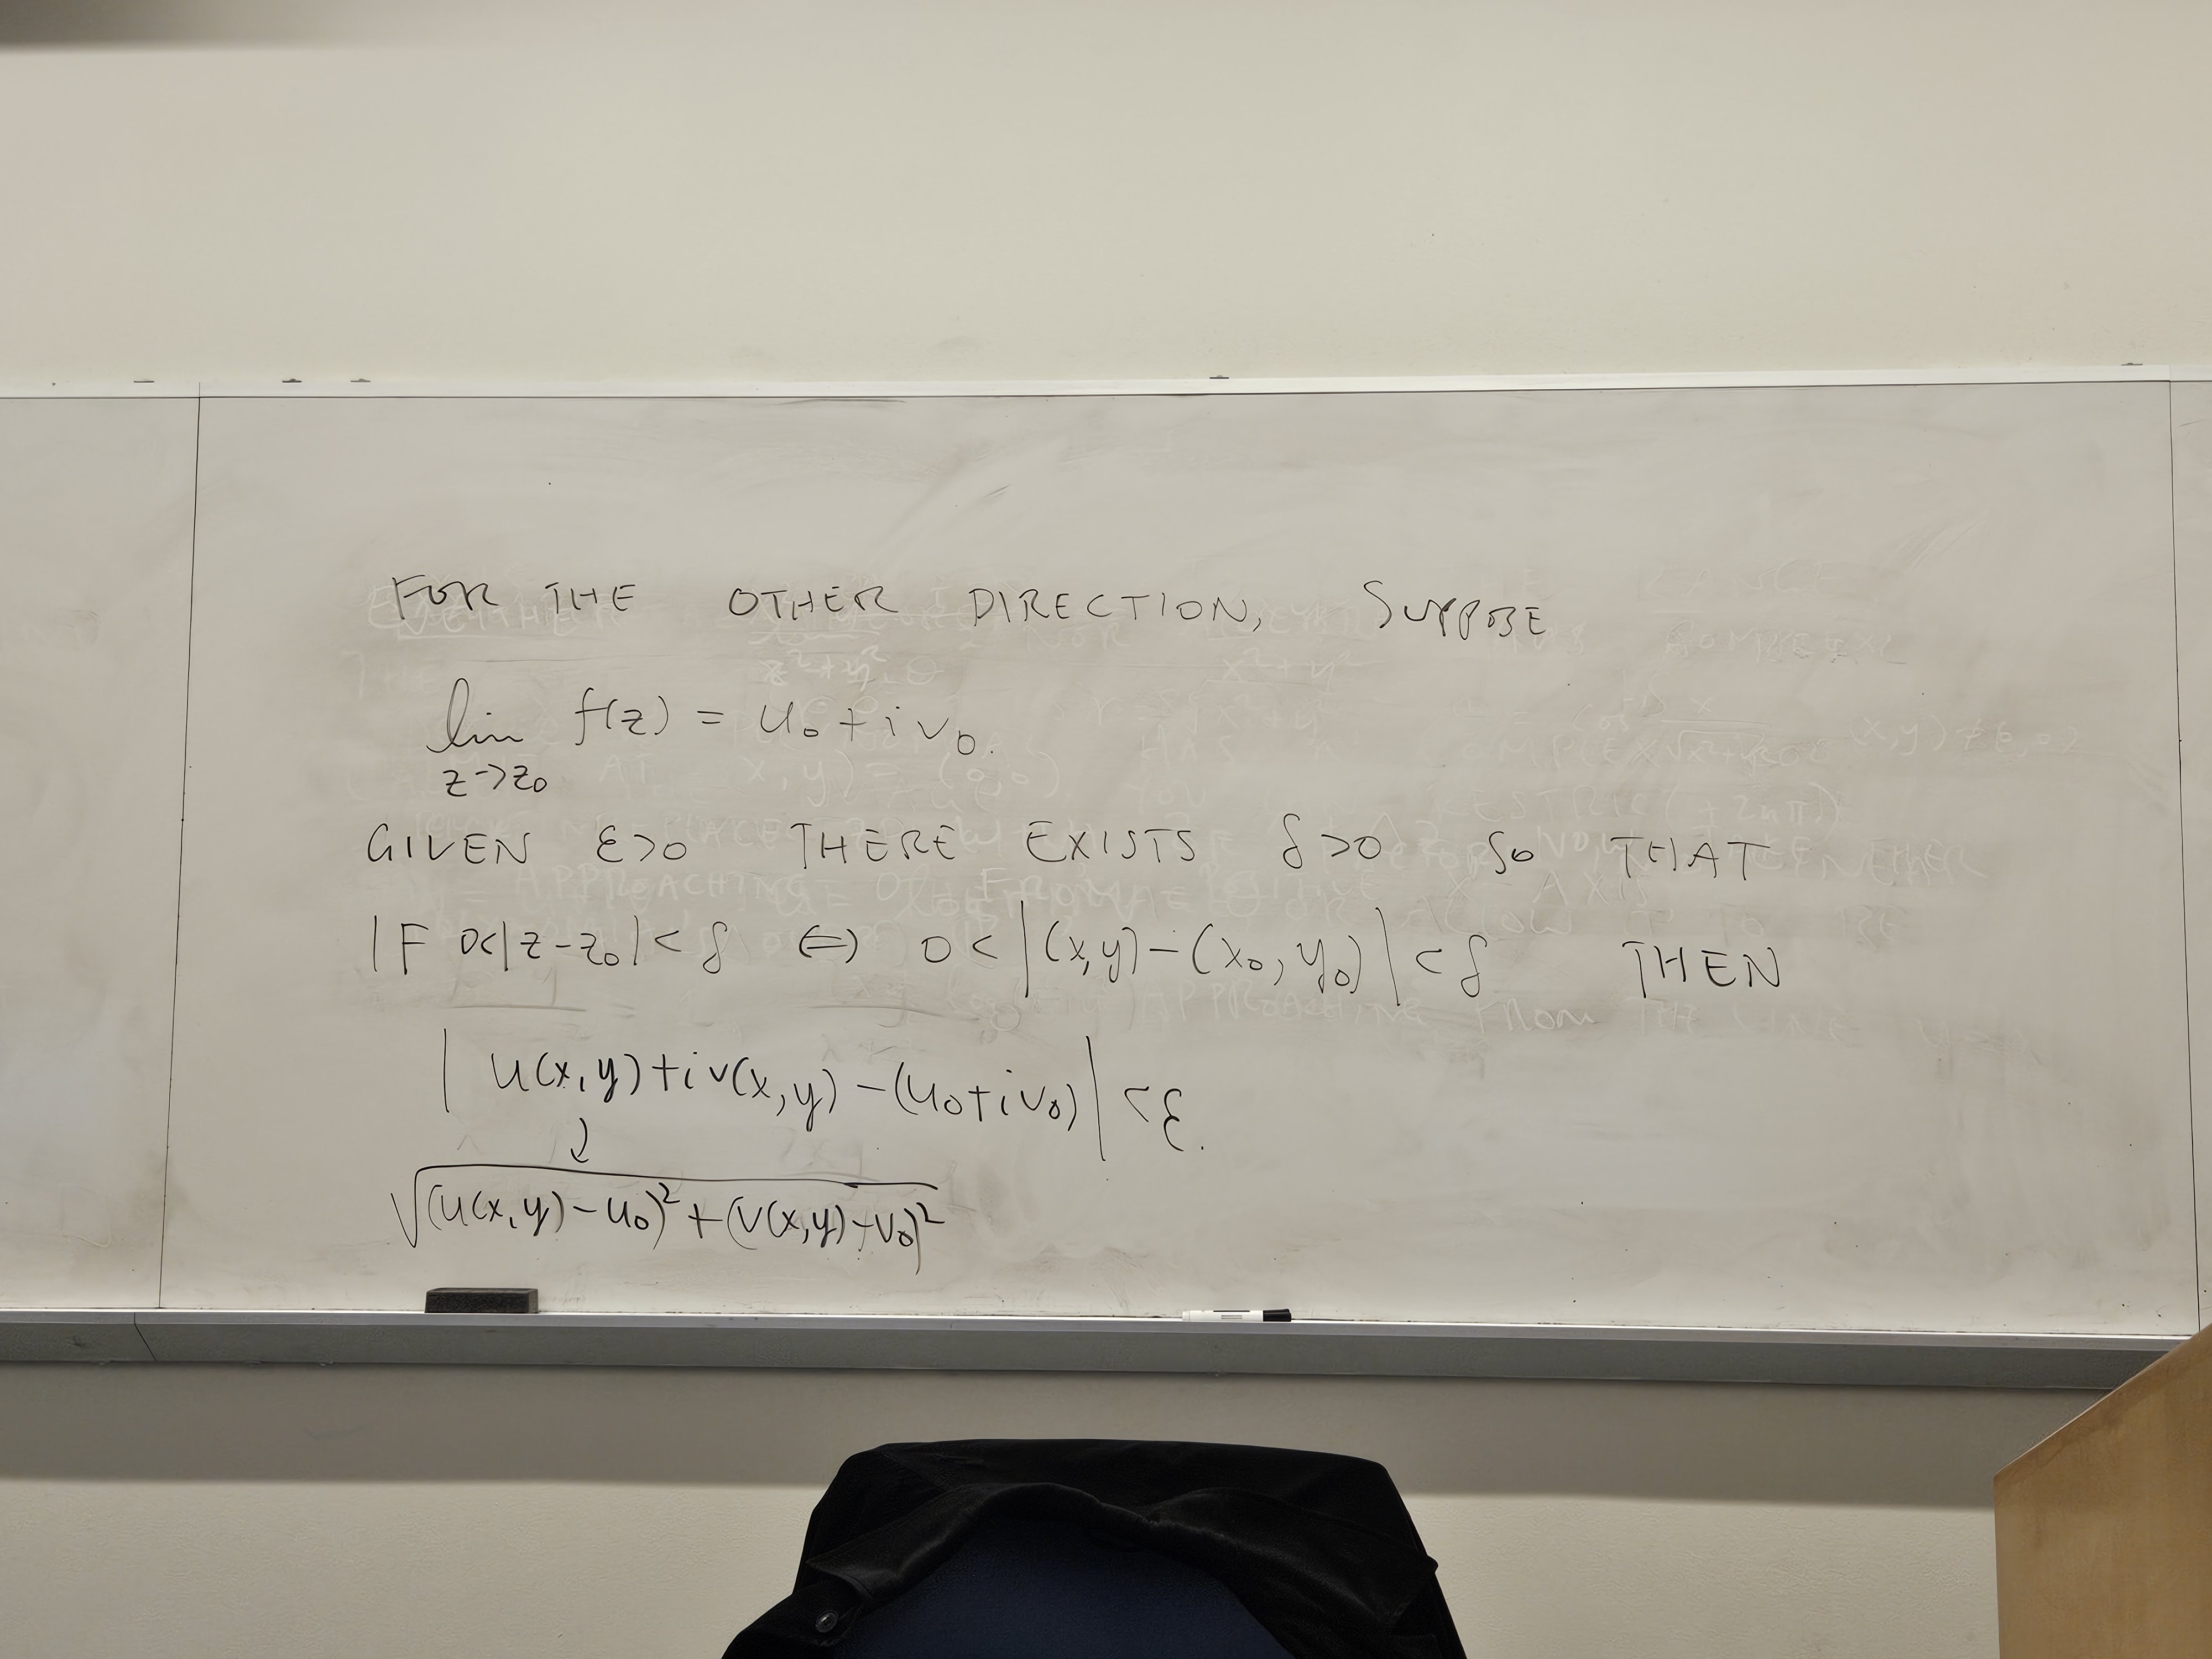 FOR THE OTHER DIRECTION, SUPPOSE
lim f(z) = u₀ + i v₀.
z→z₀
GIVEN ε>0 THERE EXISTS δ>0 SO THAT
IF 0<|z-z₀|<δ ⇔ 0<|(x,y)-(x₀,y₀)|<δ THEN
|u(x,y)+iv(x,y)-(u₀+iv₀)|<ε.
↓
√(u(x,y)-u₀)²+(v(x,y)-v₀)²